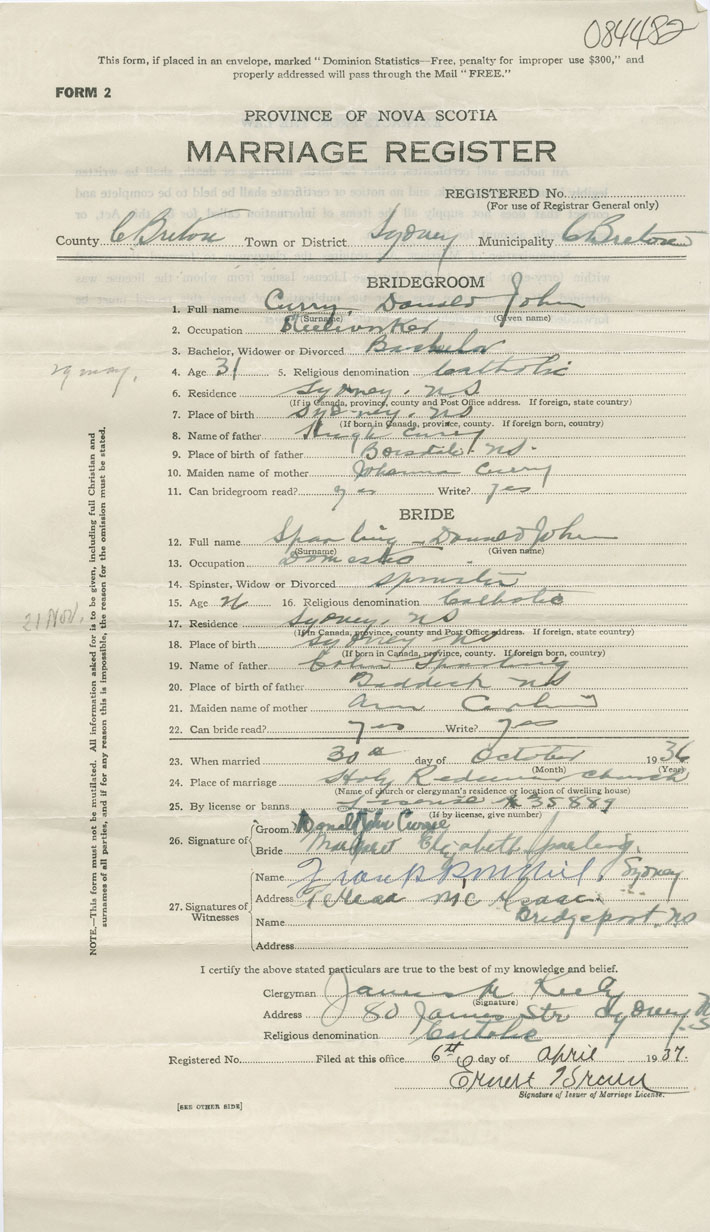 084482
This form, if placed in an envelope, marked "Dominion Statistics—Free, penalty for improper use $300," and
properly addressed will pass through the Mail "FREE."
FORM 2
PROVINCE OF NOVA SCOTIA
MARRIAGE REGISTER
REGISTERED No.
(For use of Registrar General only)
County C. Breton Town or District Sydney Municipality C Breton
BRIDEGROOM
1. Full name Curry, Donald John
(Surname) (Given name)
2. Occupation Steelworker
3. Bachelor, Widower or Divorced Bachelor
29 may.
4. Age 31 5. Religious denomination Catholic
6. Residence Sydney. NS
(If in Canada, province, county and Post Office address. If foreign, state country)
7. Place of birth Sydney. NS
(If born in Canada, province, county. If foreign born, country)
8. Name of father Hugh Curry
9. Place of birth of father NS.
10. Maiden name of mother Johanna Curry
11. Can bridegroom read? yes Write? yes
BRIDE
12. Full name Sparling - Donald John
(Surname) (Given name)
13. Occupation Domestic
14. Spinster, Widow or Divorced Spinster
21 Nov.
15. Age 16. Religious denomination Catholic
17. Residence Sydney, NS
(If in Canada, province, county and Post Office address. If foreign, state country)
18. Place of birth Sydney NS
(If born in Canada, province, county. If foreign born, country)
19. Name of father Colin Sparling
20. Place of birth of father Baddeck NS
21. Maiden name of mother Ann
22. Can bride read? yes Write? yes
23. When married 30th day of October 1936
(Month) (Year)
24. Place of marriage Holy Redeemer Church
(Name of church or clergyman's residence or location of dwelling house)
25. By license or banns License # 35889
(If by license, give number)
26. Signature of Groom Donald John Currie
Bride Margaret Elizabeth Sparling.
27. Signatures of Witnesses
Name Frank Sydney
Address Teresa McIsaac
Name Bridgeport, NS
Address
I certify the above stated particulars are true to the best of my knowledge and belief.
Clergyman James M Keely
(Signature)
Address 80 James Str Sydney N.S
Religious denomination Catholic
Registered No. Filed at this office 6th day of April 1937.
Ernest Brown
Signature of Issuer of Marriage License.
[SEE OTHER SIDE]
NOTE.—This form must not be mutilated. All information asked for is to be given, including full Christian and
surnames of all parties, and if for any reason this is impossible, the reason for the omission must be stated.